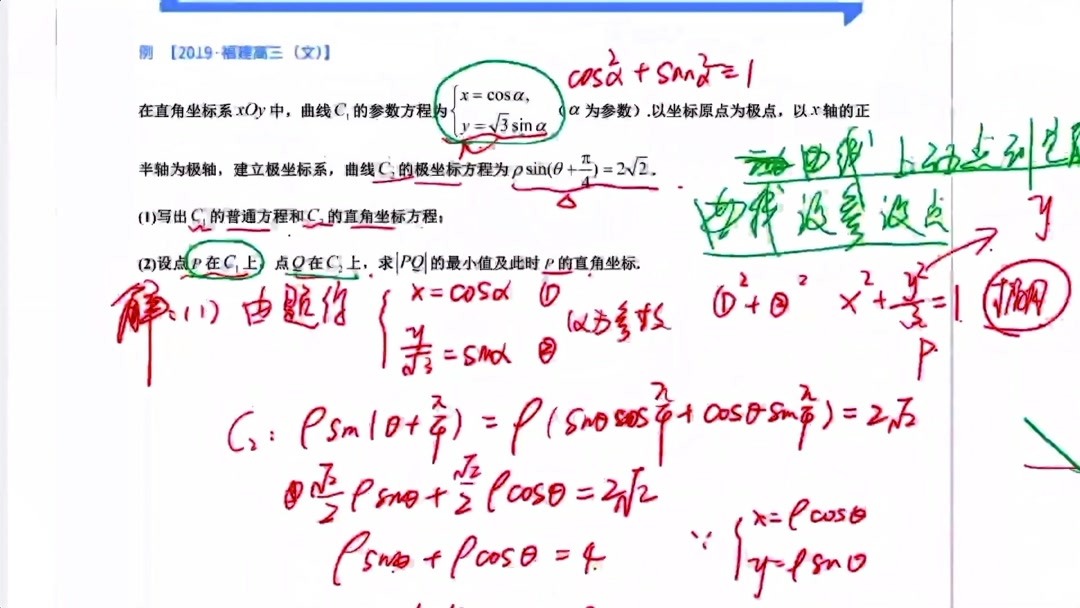 例 【2019·福建高三（文）】
cos²α + sin²α = 1
在直角坐标系 xOy 中，曲线 C₁ 的参数方程为 { x = cosα, y = √3 sinα （α 为参数）.以坐标原点为极点，以 x 轴的正
半轴为极轴，建立极坐标系，曲线 C₂ 的极坐标方程为 ρsin(θ + π/4) = 2√2.
曲线上动点到
曲线设参设点
y
(1)写出 C₁ 的普通方程和 C₂ 的直角坐标方程;
(2)设点 P 在 C₁ 上，点 Q 在 C₂ 上，求 |PQ| 的最小值及此时 P 的直角坐标.
解:(1) 由题得 { x = cosα ① y/√3 = sinα ② α为参数 ①² + ②² x² + y²/3 = 1 椭圆
P
C₂: ρsin(θ + π/4) = ρ(sinθcosπ/4 + cosθsinπ/4) = 2√2
√2/2 ρsinθ + √2/2 ρcosθ = 2√2
ρsinθ + ρcosθ = 4 ∵ { x = ρcosθ y = ρsinθ